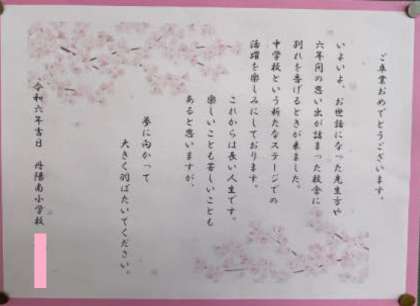 ご卒業おめでとうございます。
いよいよ、お世話になった先生方や
六年間の思い出が詰まった校舎に
別れを告げるときが来ました。
中学校という新たなステージでの
活躍を楽しみにしております。
これからは長い人生です。
楽しいことも苦しいことも
あると思いますが、
夢に向かって
大きく羽ばたいてください。
令和六年吉日　丹陽南小学校